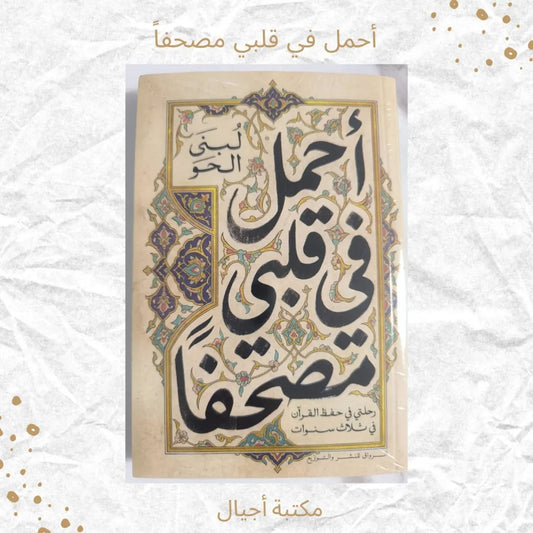 أحمل في قلبي مصحفاً
لُبنى
الحو
أحمل
في قلبي
مصحفاً
رحلتي في حفظ القرآن
في ثلاث سنوات
رواق للنشر والتوزيع
مكتبة أجيال